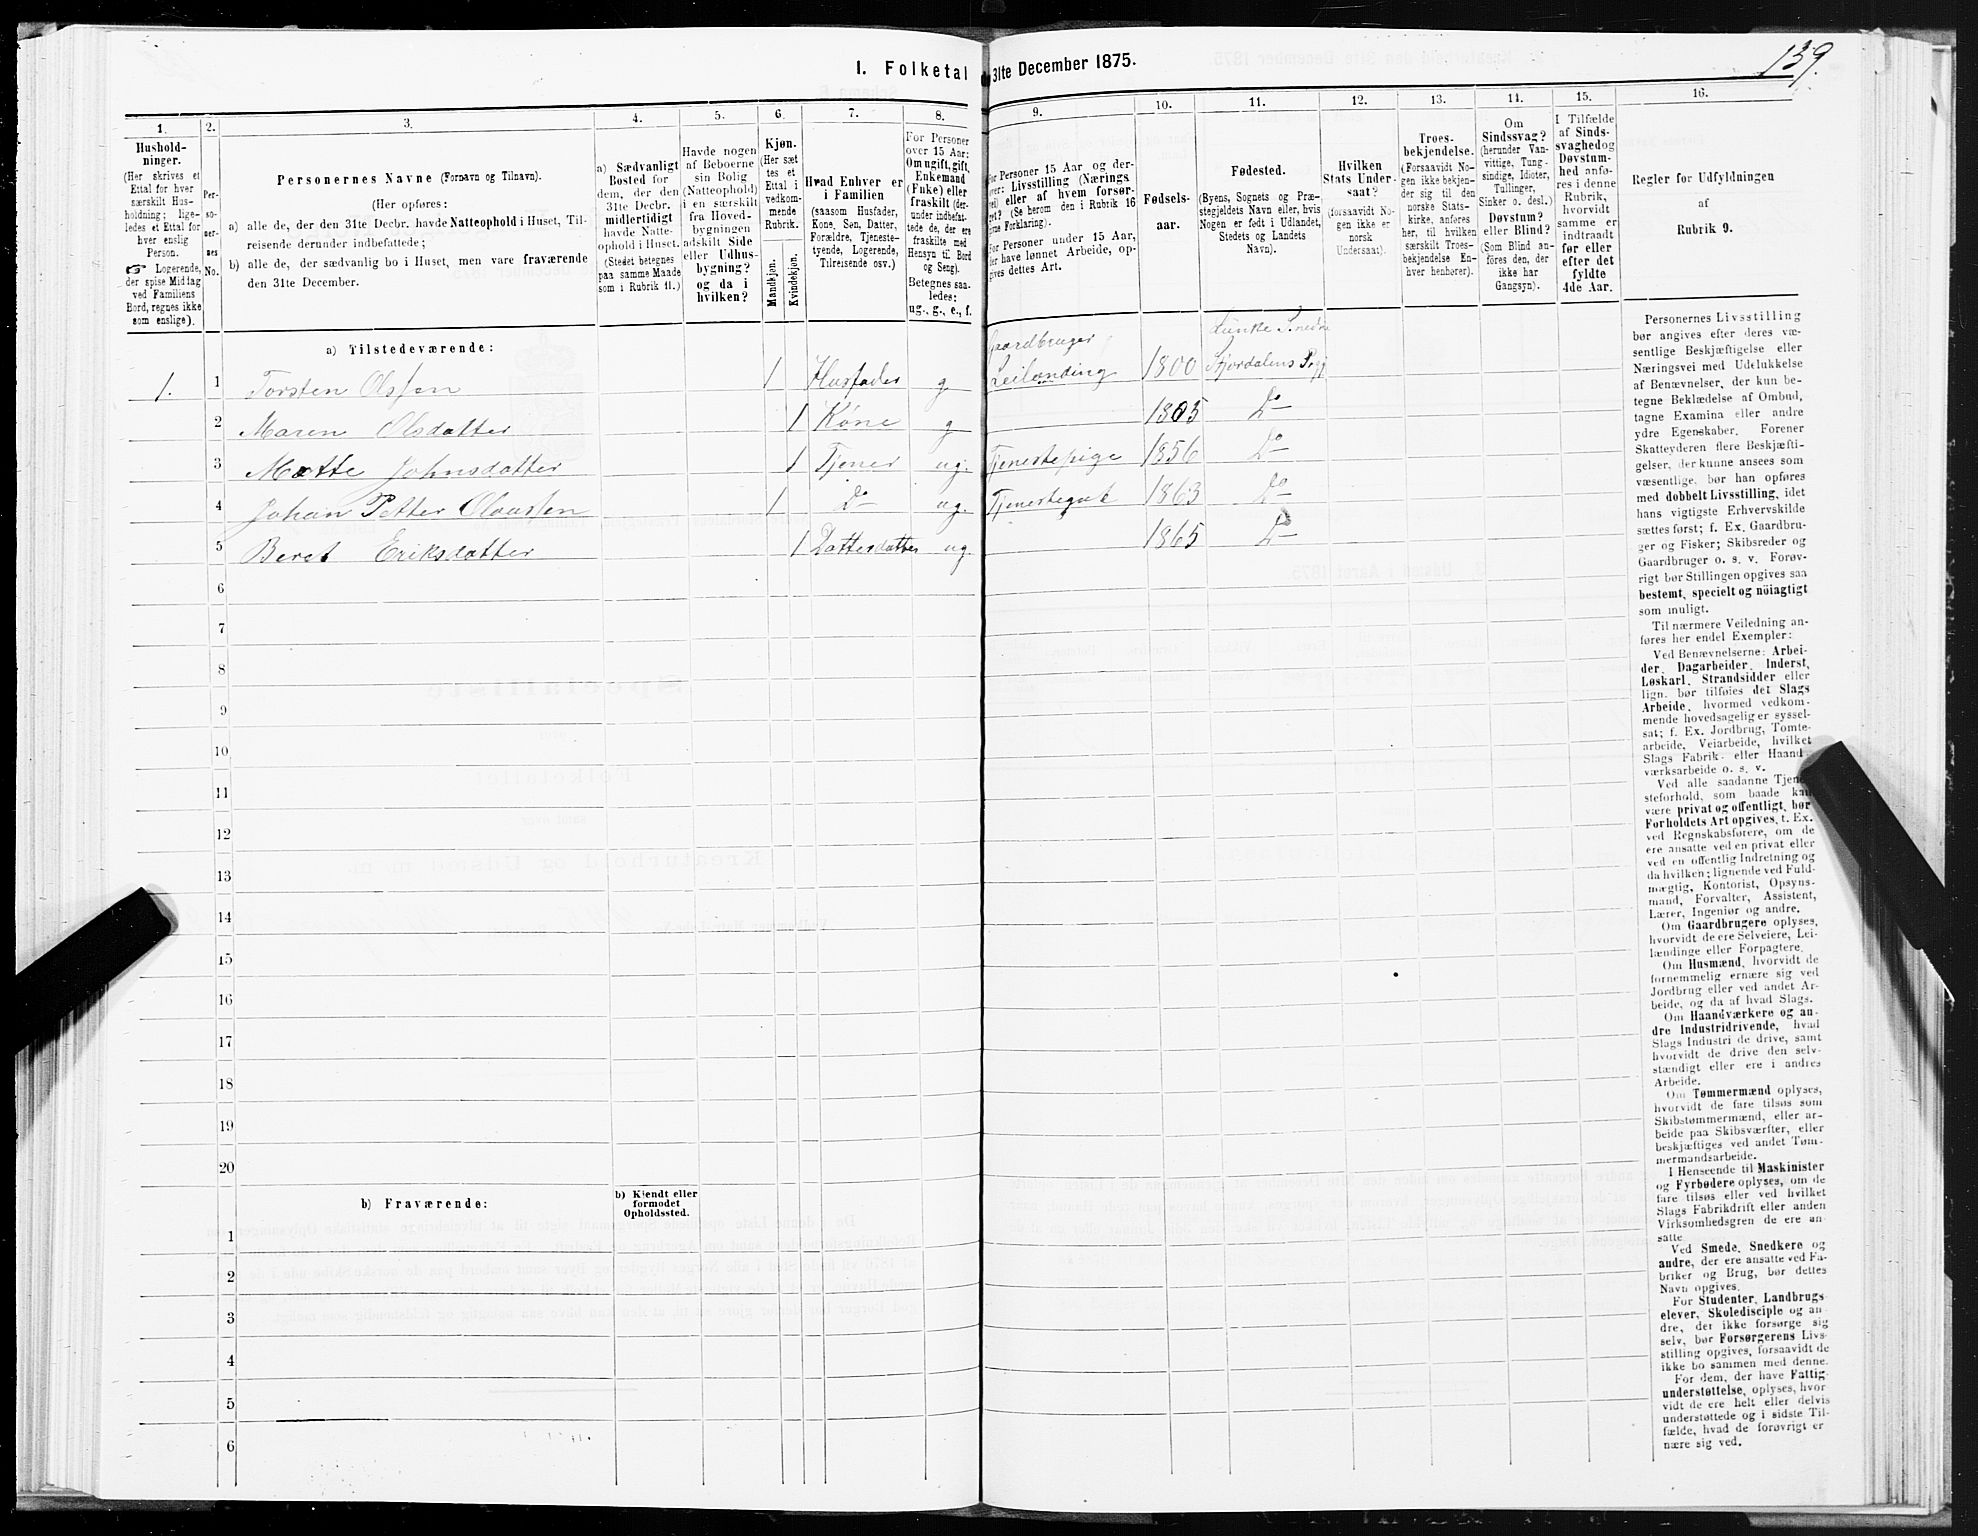 I. Folketal 31te December 1875.
139.
1. 2. 3. 4. 5. 6. 7. 8. 9. 10. 11. 12. 13. 14. 15. 16.
Hushold-
ninger.
(Her skrives et
Ettal for hver
særskilt Hus-
holdning; lige-
ledes et Ettal for
hver enslig
Person.
☞ Logerende,
der spise Middag
ved Familiens
Bord, regnes ikke
som enslige).
Per-
so-
ner-
nes
No.
Personernes Navne (Fornavn og Tilnavn).
(Her opføres:
a) alle de, der den 31te Decbr. havde Natteophold i Huset, Til-
reisende derunder indbefattede;
b) alle de, der sædvanlig bo i Huset, men vare fraværende
den 31te December.
a) Sædvanligt
Bosted for
dem, der den
31te Decbr.
midlertidigt
havde Natte-
ophold i Huset.
(Stedet betegnes
paa samme Maade
som i Rubrik 11.)
Havde nogen
af Beboerne
sin Bolig
(Natteophold)
i en særskilt
fra Hoved-
bygningen
adskilt Side
eller Udhus-
bygning?
og da i
hvilken?
Kjøn.
(Her sæt
tes et
Ettal i
vedkom-
mende
Rubrik.
Mandkjøn.
Kvindekjøn.
Hvad Enhver er
i Familien
(saasom Husfader,
Kone, Søn, Datter,
Forældre, Tjeneste-
tyende, Logerende,
Tilreisende osv.)
For Personer
over 15 Aar:
Om ugift, gift,
Enkemand
(Enke) eller
fraskilt (der-
under indbefat-
tede de, der ere
fraskilte med
Hensyn til Bord
og Seng).
Betegnes saa-
ledes:
ug., g., e., f.
For Personer 15 Aar og der-
over: Livsstilling (Nærings
vei) eller af hvem forsør-
get? (Se herom den i Rubrik 16
givne Forklaring).
For Personer under 15 Aar,
der have lønnet Arbeide, op-
gives dettes Art.
Fødsels-
aar.
Fødested.
(Byens, Sognets og Præ-
stegjeldets Navn eller, hvis
Nogen er født i Udlandet,
Stedets og Landets
Navn).
Hvilken
Stats Under-
saat?
(forsaavidt No-
gen ikke er
norsk
Undersaat).
Troes-
bekjendelse.
(Forsaavidt No-
gen ikke bekjen-
der sig til den
norske Stats-
kirke, anføres
her, til hvilken
særskilt Troes-
bekjendelse En-
hver henhører).
Om
Sindssvag?
(herunder Van-
vittige, Tung-
sindige, Idioter,
Tullinger,
Sinker o. desl.)
Døvstum?
eller Blind?
(Som Blind an-
føres den, der
ikke har
Gangsyn).
I Tilfælde
af Sinds-
svaghed og
Døvstum-
hed anfø-
res i denne
Rubrik,
hvorvidt
samme er
indtraadt
før eller
efter det
fyldte
4de Aar.
Regler før Udfyldningen
af
Rubrik 9.
a) Tilstedeværende:
1. 1 Torsten Olssen 1 Husfader g Gaardbruger Leilænding 1800 Stjordalens Prgj
2 Maren Olsdatter 1 Kone g 1805 Do
3 Mætte Johnsdatter 1 Tjener ug. Tjenestepige 1856 Do
4 Johan Petter Olaussen 1 Do ug. Tjenestegut 1863 Do
5 Beret Eriksdatter 1 Datterdatter ug. 1865 Do
6
7
8
9
10
11
12
13
14
15
16
17
18
19
20
b) Fraværende:
b) Kjendt eller
formodet
Opholdssted.
1
2
3
4
5
6
Personernes Livsstilling
bør angives efter deres væ-
sentlige Beskjæftigelse eller
Næringsvei med Udelukkelse
af Benævnelser, der kun be-
tegne Beklædelse af Ombud,
tagne Examina eller andre
ydre Egenskaber. Forener
Skatteyderen flere Beskjæfti-
gelser, der kunne ansees som
væsentlige, bør han opføres
med dobbelt Livsstilling, idet
hans vigtigste Erhvervskilde
sættes først; f. Ex. Gaardbru-
ger og Fisker; Skibsreder og
Gaardbruger o. s. v. Forøv-
rigt bør Stillingen opgives saa
bestemt, specielt og nöiagtigt
som muligt.
Til nærmere Veiledning an-
føres her endel Exempler:
Ved Benævnelserne: Arbei-
der, Dagarbeider, Inderst,
Løskarl, Strandsidder eller
lign. bør tilføies det Slags
Arbeide, hvormed vedkom-
mende hovedsagelig er syssel-
sat; f. Ex. Jordbrug, Tomte-
arbeide, Veiarbeide, hvilket
Slags Fabrik- eller Haand-
værksarbeide o. s. v.
Ved alle saadanne Tjene-
steforhold, som baade kan
være privat og offentligt, bør
Forholdets Art opgives, t. Ex.
ved Regnskabsførere, om de
ere ansatte ved en privat eller
ved en offentlig Indretning og
da hvilken; lignende ved Fuld-
mægtig, Kontorist, Opsyns-
mand, Forvalter, Assistent,
Lærer, Ingeniør og andre.
Om Gaardbrugere oplyses,
hvorvidt de ere Selveiere, Lei-
lændinge eller Forpagtere.
Om Husmænd, hvorvidt de
fornemmelig ernære sig ved
Jordbrug eller ved andet Ar-
beide, og da af hvad Slags.
Om Haandværkere og an-
dre Industridrivende, hvad
Slags Industri de drive, samt
hvorvidt de drive den selv-
stændigt eller ere i andres
Arbeide.
Om Tømmermænd oplyses,
hvorvidt de fare tilsøs som
Skibstømmermænd, eller ar-
beide paa Skibsværfter, eller
beskjæftiges ved andet Tøm-
mermandsarbeide.
I Henseende til Maskinister
og Fyrbødere oplyses, om de
fare tilsøs eller ved hvilket
Slags Fabrikdrift eller anden
Virksomhedsgren de ere an-
satte
Ved Smede, Snedkere og
andre, der ere ansatte ved Fa-
briker og Brug, bør dettes
Navn opgives.
For Studenter, Landbrugs-
elever, Skoledisciple og an-
dre, der ikke forsørge sig
selv, bør Forsørgerens Livs-
stilling opgives, forsaavidt de
ikke bo sammen med denne.
For dem, der have Fattig-
understøttelse, oplyses, hvor-
vidt de ere helt eller delvis
understøttede og i sidste Til-
fælde, hvad de forøvrigt er
nære sig ved.